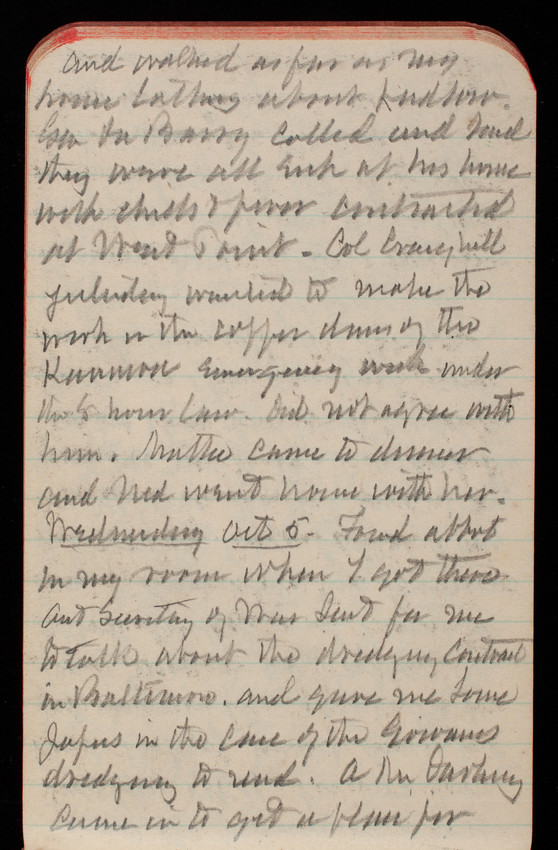 and walked as far as my
home talking about Ludlow.
Genl Du Barry called and said
they were all sick at his home
with chills & fever contracted
at West Point. Col Craighill
yesterday wanted to make the
work in the coffer dams of the
Kanawha emergency work under
the 8 hour law. Did not agree with
him. Mattie came to dinner
and Ned went home with her.
Wednesday Oct 5. Found Abbot
in my room when I got there
Act Secretary of War sent for me
to talk about the dredging Contract
in Baltimore. and gave me some
papers in the case of the Gowanus
dredging to read. A Mr
came in to get a plan for